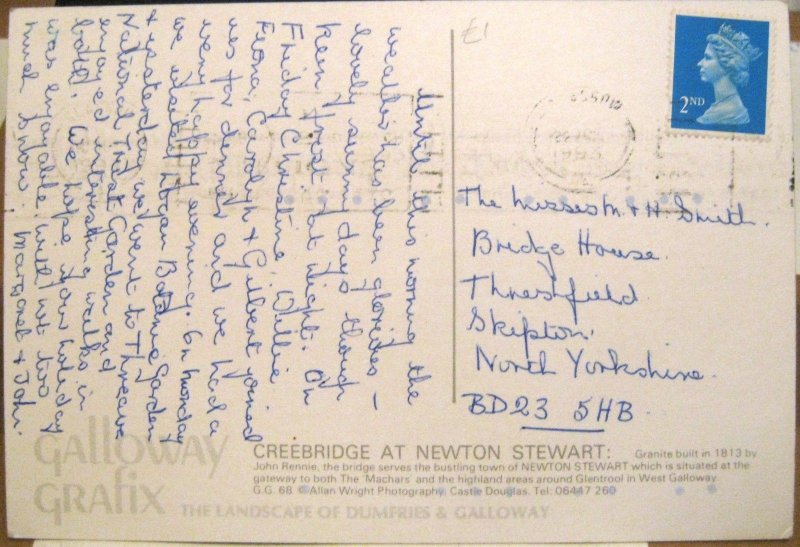 Until this morning the
weather has been glorious –
lovely sunny days though
keen frost at night. On
Friday Christine, Willie
Fiona, Carolyn & Gilbert joined
us for dinner and we had a
very happy evening. On Monday
we visited Logan Botanic Garden
& yesterday we went to Threave
National Trust Garden and
enjoyed interesting walks in
both. We hope your holiday
was enjoyable with not too
much snow. Margaret & John.
£1
2ND
The Misses M. & H. Smith.
Bridge House.
Threshfield.
Skipton.
North Yorkshire.
BD23 5HB.
Galloway
Grafix
CREEBRIDGE AT NEWTON STEWART: Granite built in 1813 by
John Rennie, the bridge serves the bustling town of NEWTON STEWART which is situated at the
gateway to both The 'Machars' and the highland areas around Glentrool in West Galloway
G.G. 68 © Allan Wright Photography, Castle Douglas. Tel: 06447 260
THE LANDSCAPE OF DUMFRIES & GALLOWAY